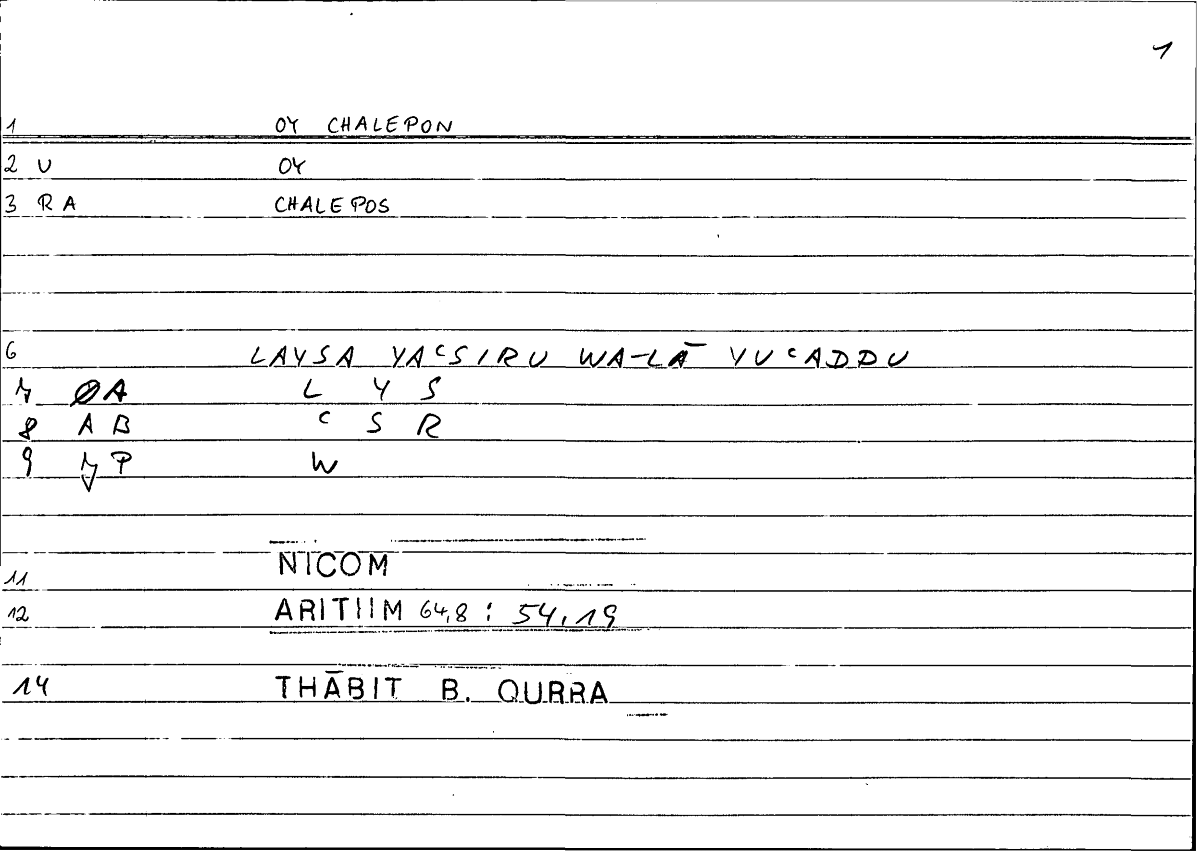 1
1 OY CHALEPON
2 U OY
3 RA CHALEPOS
6 LAYSA YAᶜSIRU WA-LĀ YUᶜADDU
7 ØA L Y S
8 AB ᶜ S R
9 7P W
11 NICOM
12 ARITIIM 64,8 : 54,19
14 THĀBIT B. QURRA